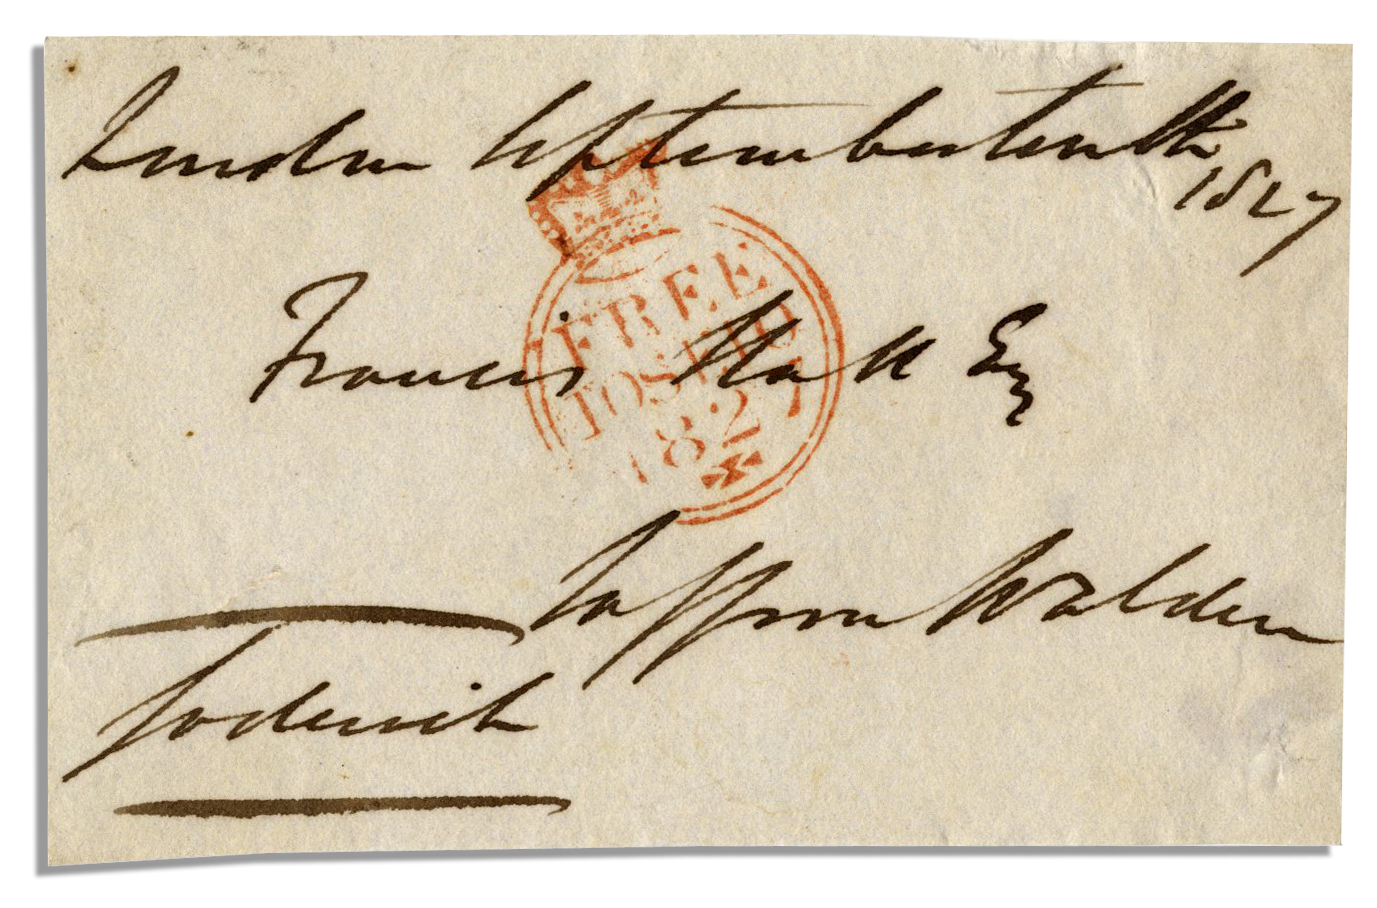 London September tenth
1827
FREE
10 SE 10
1827
Francis Hall Esq
Saffron Walden
Goderich